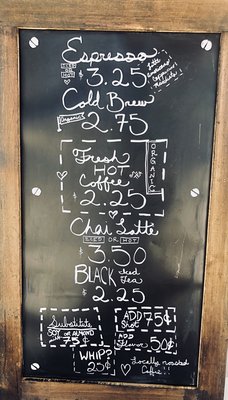 Espresso
ICED OR HOT
$ 3.25
Latte
Cappuccino
Cold Brew
Organic
2.75
Fresh
HOT
Coffee
$ 2.25
ORGANIC
Chai Latte
ICED OR HOT
$ 3.50
BLACK Iced Tea
$ 2.25
Substitute
SOY or ALMOND
75¢
ADD Shot 75¢
ADD Flavor 50¢
WHIP?
25¢
Locally roasted
Coffee